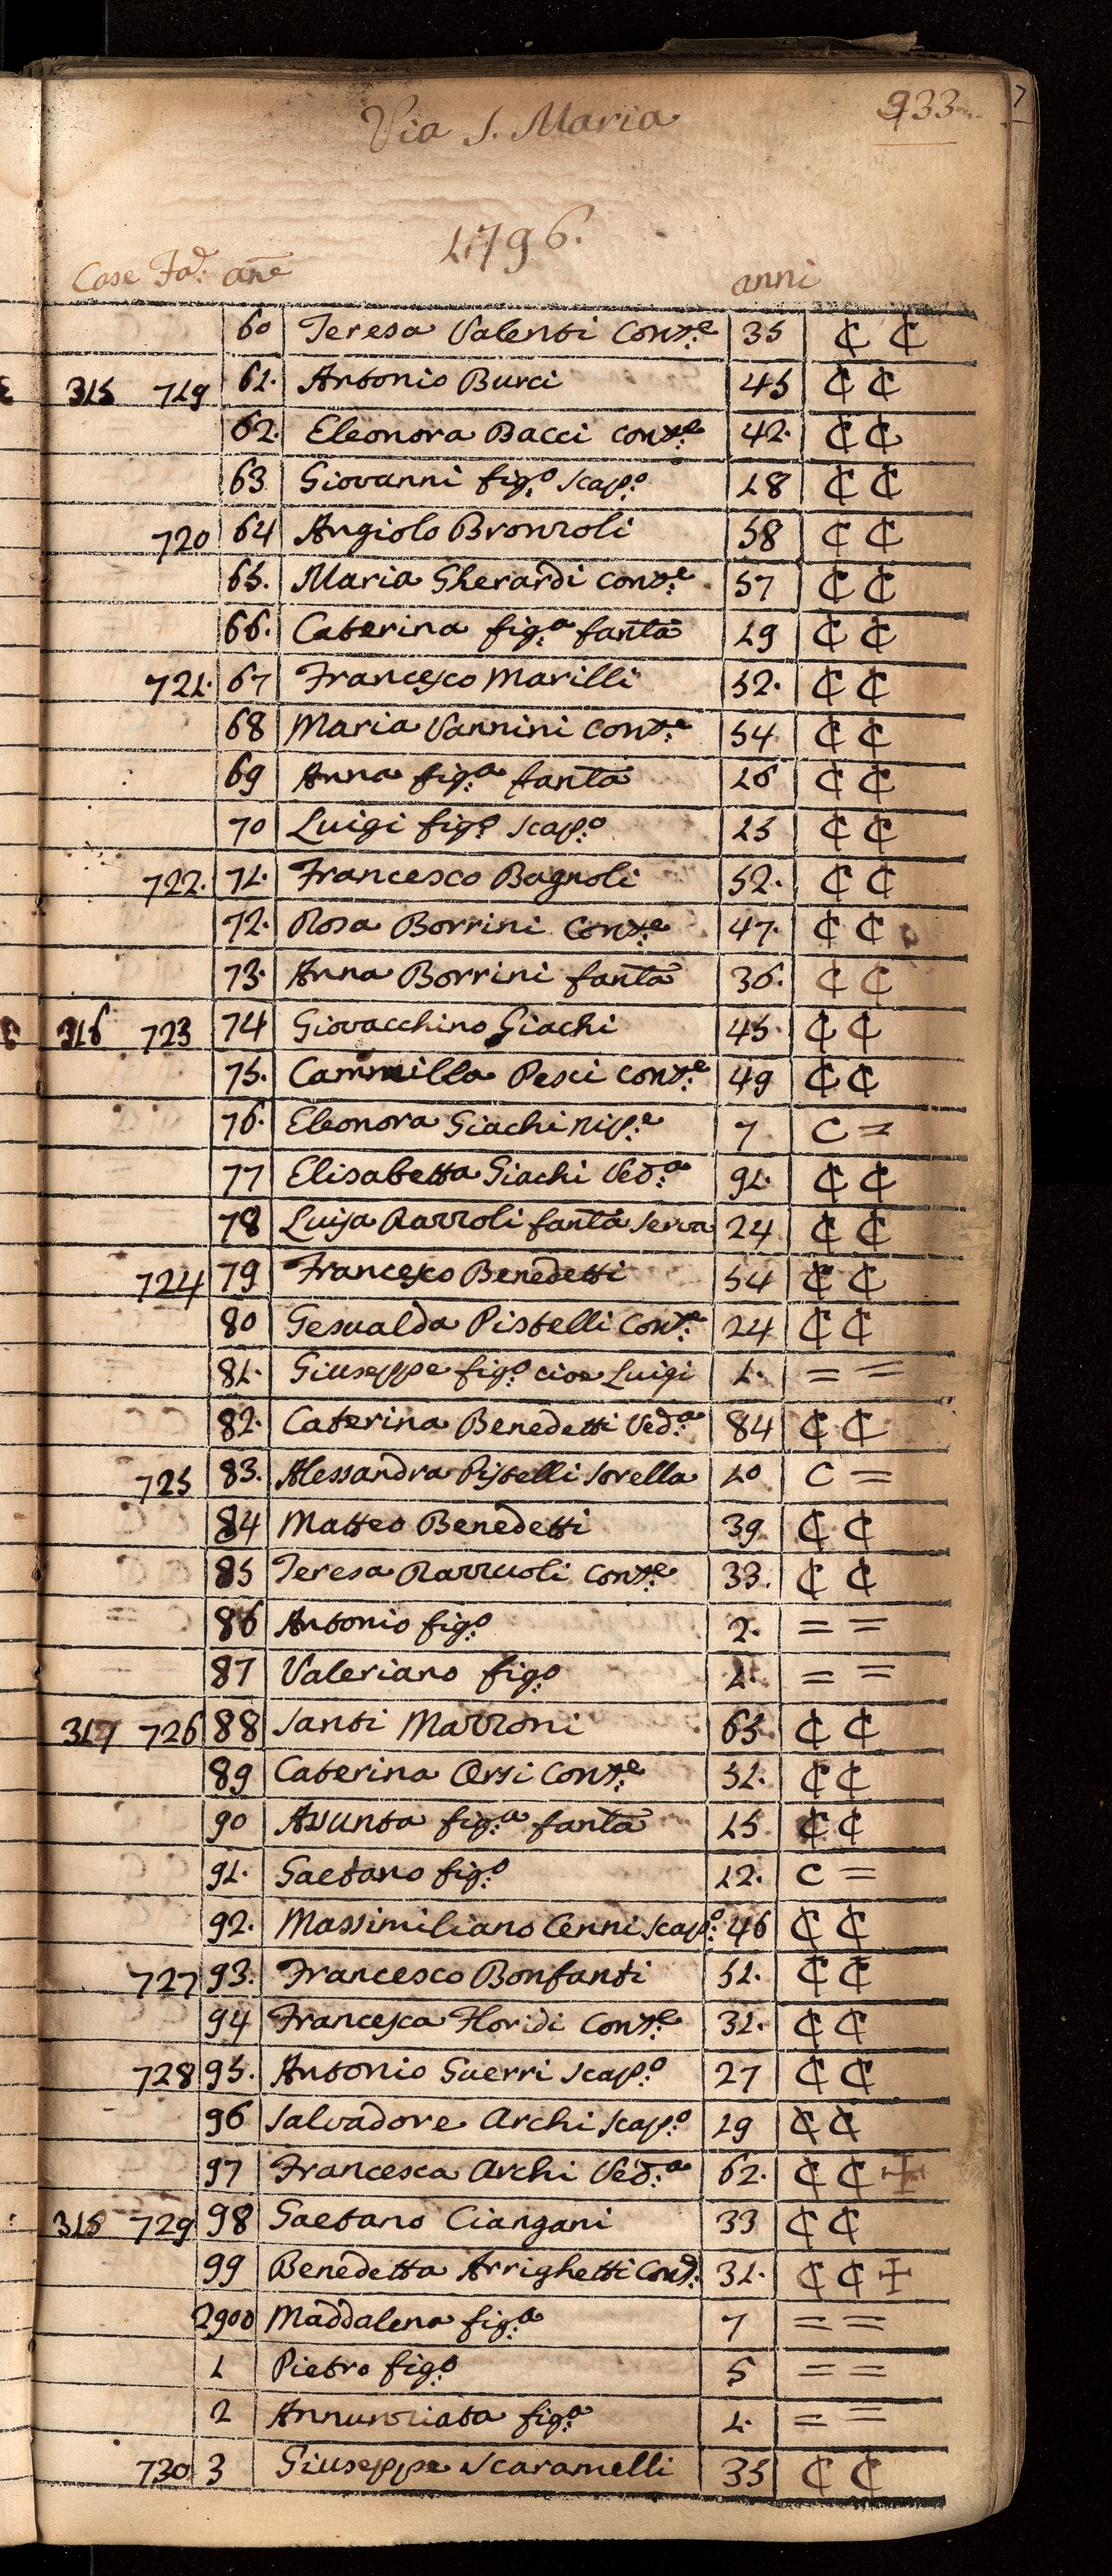 Via S. Maria 933
1796.
Case Fad: an̄e anni
60 Teresa Valenti Cons:e 35 ₵ ₵
315 719 61. Antonio Burci 45 ₵ ₵
62. Eleonora Bacci cons:e 42. ₵ ₵
63 Giovanni fig:o scap:o 18 ₵ ₵
720 64 Angiolo Bronzoli 58 ₵ ₵
65. Maria Gherardi cons:e 57 ₵ ₵
66. Caterina fig:a fanta 19 ₵ ₵
721. 67 Francesco Marilli 52. ₵ ₵
68 Maria Vannini Cons:e 54 ₵ ₵
69 Anna fig:a fanta 26 ₵ ₵
70 Luigi fig:o scap:o 23 ₵ ₵
722. 71. Francesco Bagnoli 52. ₵ ₵
72. Rosa Borrini Cons:e 47. ₵ ₵
73. Anna Borrini fanta 36. ₵ ₵
316 723 74 Giovacchino Giachi 45. ₵ ₵
75. Cammilla Pesci cons:e 49 ₵ ₵
76. Eleonora Giachi nip:e 7 C =
77 Elisabetta Giachi Ved:a 91. ₵ ₵
78 Luisa Razzoli fanta serva 24 ₵ ₵
724 79 Francesco Benedetti 54 ₵ ₵
80 Gesualda Pistelli Cons:e 24 ₵ ₵
81. Giuseppe fig:o cioe Luigi 1. = =
82. Caterina Benedetti Ved:a 84 ₵ ₵
725 83. Alessandra Pistelli sorella 10 C =
84 Matteo Benedetti 39 ₵ ₵
85 Teresa Razzuoli Cons:e 33. ₵ ₵
86 Antonio fig:o 2. = =
87 Valeriano fig:o 1. = =
317 726 88 Santi Mazzoni 63 ₵ ₵
89 Caterina Orsi Cons:e 51. ₵ ₵
90 Assunta fig:a fanta 15 ₵ ₵
91. Gaetano fig:o 12. C =
92. Massimiliano Cenni scap:o 46 ₵ ₵
727 93. Francesco Bonfanti 51. ₵ ₵
94 Francesca Floridi Cons:e 31. ₵ ₵
728 95. Antonio Guerri scap:o 27 ₵ ₵
96 Salvadore Archi scap:o 29 ₵ ₵
97 Francesca Archi Ved:a 62. ₵ ₵ ✢
318 729 98 Gaetano Ciangani 33 ₵ ₵
99 Benedetta Arrighetti Cons: 31. ₵ ₵ ✢
2900 Maddalena fig:a 7 = =
1 Pietro fig:o 5 = =
2 Annunziata fig:a 1. = =
730 3 Giuseppe Scaramelli 35 ₵ ₵